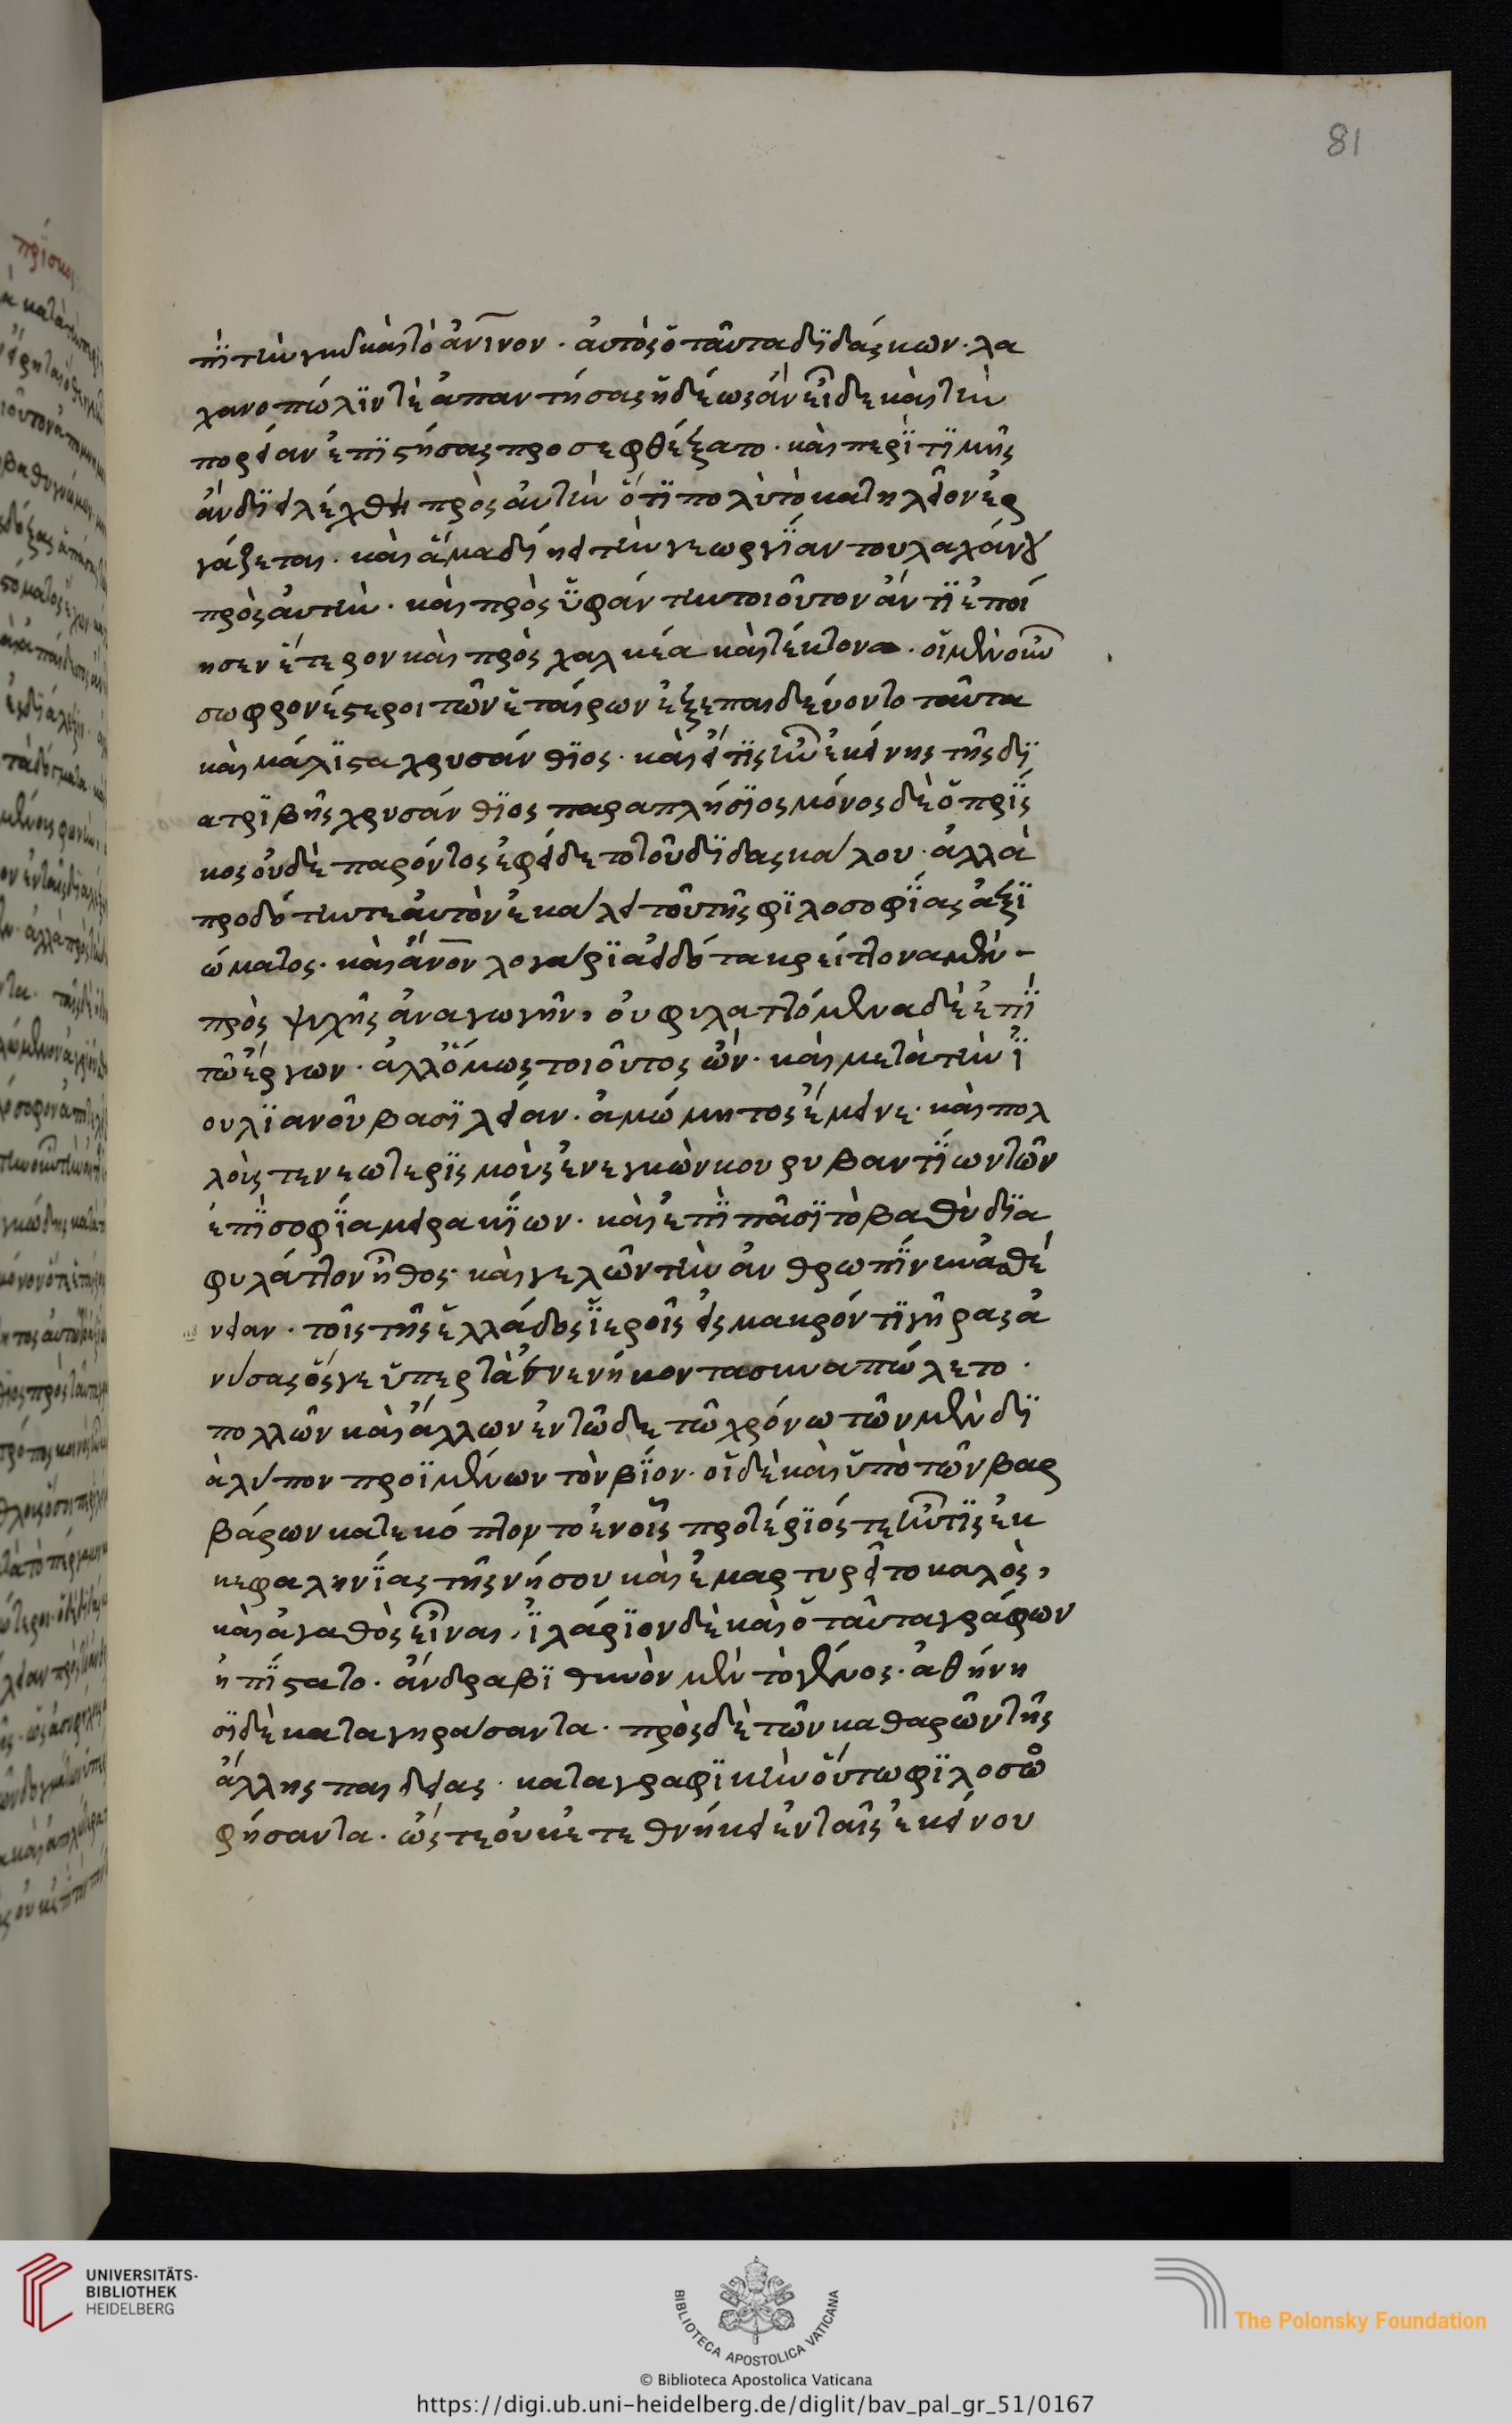 81
πὶ τὴν γῆν καὶ τὸ ἀνινον. αὐτὸς ὁ ταῦτα διδάσκων. λα
χανοπώλιν τὲ ἀπαντήσας ἡδέως ἂν εἶδε καὶ τὴν
πορείαν ἐπιστήσας προσεφθέγξατο. καὶ περὶ τιμῆς
ἂν διειλέχθη πρὸς αὐτὴν ὅτι πολὺ τὸ κατηλεῖον ἐρ
γάζεται. καὶ ἅμα διήει τὴν γεωργίαν του λαχάνου
πρὸς αὐτὴν. καὶ πρὸς ὑφάντην τοιοῦτον ἄν τι ἐποί
ησεν ἕτερον καὶ πρὸς χαλκέα καὶ τέκτονα. οἱ μὲν οὖν
σωφρονέστεροι τῶν ἑταίρων ἐξεπαιδεύοντο ταῦτα
καὶ μάλιστα χρυσάνθιος. καὶ εἴ τις ἦν ἐκείνης τῆς δι
ατριβῆς χρυσάνθιος παραπλήσιος μόνος δὲ ὁ πρίς
κος οὐδὲ παρόντος ἐφείδετο τοῦ διδασκάλου. ἀλλὰ
προδότην τε αὐτὸν ἐκάλει τοῦ τῆς φιλοσοφίας ἀξι
ώματος. καὶ ἄνον λογάρια εἰδότα κρείττονα μὲν
πρὸς ψυχῆς ἀναγωγὴν, οὐ φυλαττόμενα δὲ ἐπὶ
τῶ ἔργων. ἀλλ' ὅμως τοιοῦτος ὢν. καὶ μετὰ τὴν ἰ
ουλιανοῦ βασιλείαν. ἀμώμητος ἔμεινε. καὶ πολ
λοὶς τε νεωτερισμοὺς ἐνεγκὼν κουρυβαντίων τῶν
ἐπὶ σοφία μειρακίων. καὶ ἐπὶ πᾶσι τὸ βαθὺ δια
φυλάττον ἦθος. καὶ γελῶν τὴν ἀνθρωπίνην ἀσθέ
νειαν. τοῖς τῆς ἑλλάδος ἱεροῖς εἰς μακρόν τι γῆρας ἀ
νύσας ὅς γε ὑπὲρ τὰ ἐνενήκοντα συναπώλετο.
πολλῶν καὶ ἄλλων ἐν τῶδε τῶ χρόνω τῶν μὲν δι
ὰ λύπον προϊμένων τὸν βίον. οἱ δὲ καὶ ὑπὸ τῶν βαρ
βάρων κατεκόπτοντο ἐν οἷς προτέριός τε ἦν τις ἐκ
κεφαληνίας τῆς νήσου καὶ ἐμαρτυρεῖτο καλὸς,
καὶ ἀγαθὸς εἶναι, ἱλάριον δὲ καὶ ὁ ταῦτα γράφων
ἠπίστατο. ἄνδρα βιθυνὸν μὲν τὸ γένος. ἀθήνη
σι δὲ καταγηράσαντα. πρὸς δὲ τῶν καθαρῶν τῆς
ἄλλης παιδείας. κατα γραφικὴν οὕτω φιλοσο
φήσαντα. ὥστε οὐκ ἐτεθνήκει ἐν ταῖς ἐκείνου
UNIVERSITÄTS-
BIBLIOTHEK
HEIDELBERG
BIBLIOTECA APOSTOLICA VATICANA
The Polonsky Foundation
© Biblioteca Apostolica Vaticana
https://digi.ub.uni-heidelberg.de/diglit/bav_pal_gr_51/0167